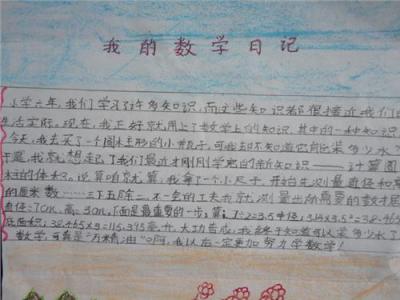 我的数学日记
小学六年,我们学习了许多知识,而这些知识都很接近我们的
生活实际。现在,我正好就用上了数学上的知识,其中的一种知识
今天,我去买了一个圆木主形的小瓶子,可我却不知道它能装多少水了
于是,我就想起了我们最近才刚刚学完的新知识——计算圆
柱的体积。说算咱就算,我拿了一个小尺子,开始先测量直径和高
的厘米数……三下五除二,不一会的工夫我就测量出所需要的数才居
直径:7cm,高:3cm,下面是最重要的一步:算;7÷2=3.5半径;3.14×3.5²=38.465
底面积;38.465×3=115.395毫升,大功告成,我终于知道可以装多少水了
数学,可真是“万米青油”啊,我以后一定更加努力学数学!